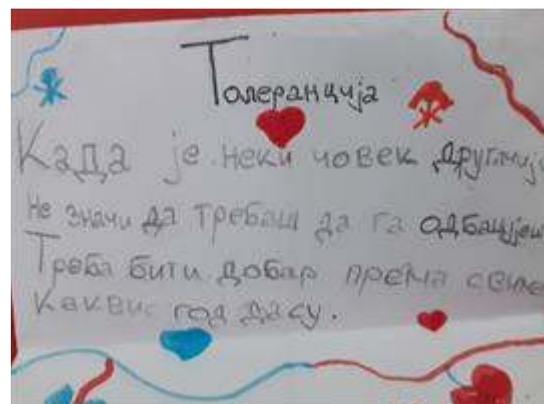 Толеранција
Када је неки човек другачији
не значи да требаш да га одбацујеш
Треба бити добар према свима
каквис год дасу.